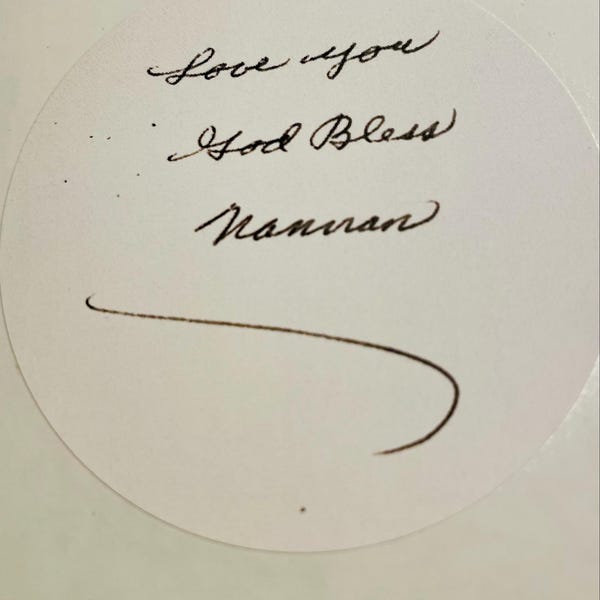 Love you
God Bless